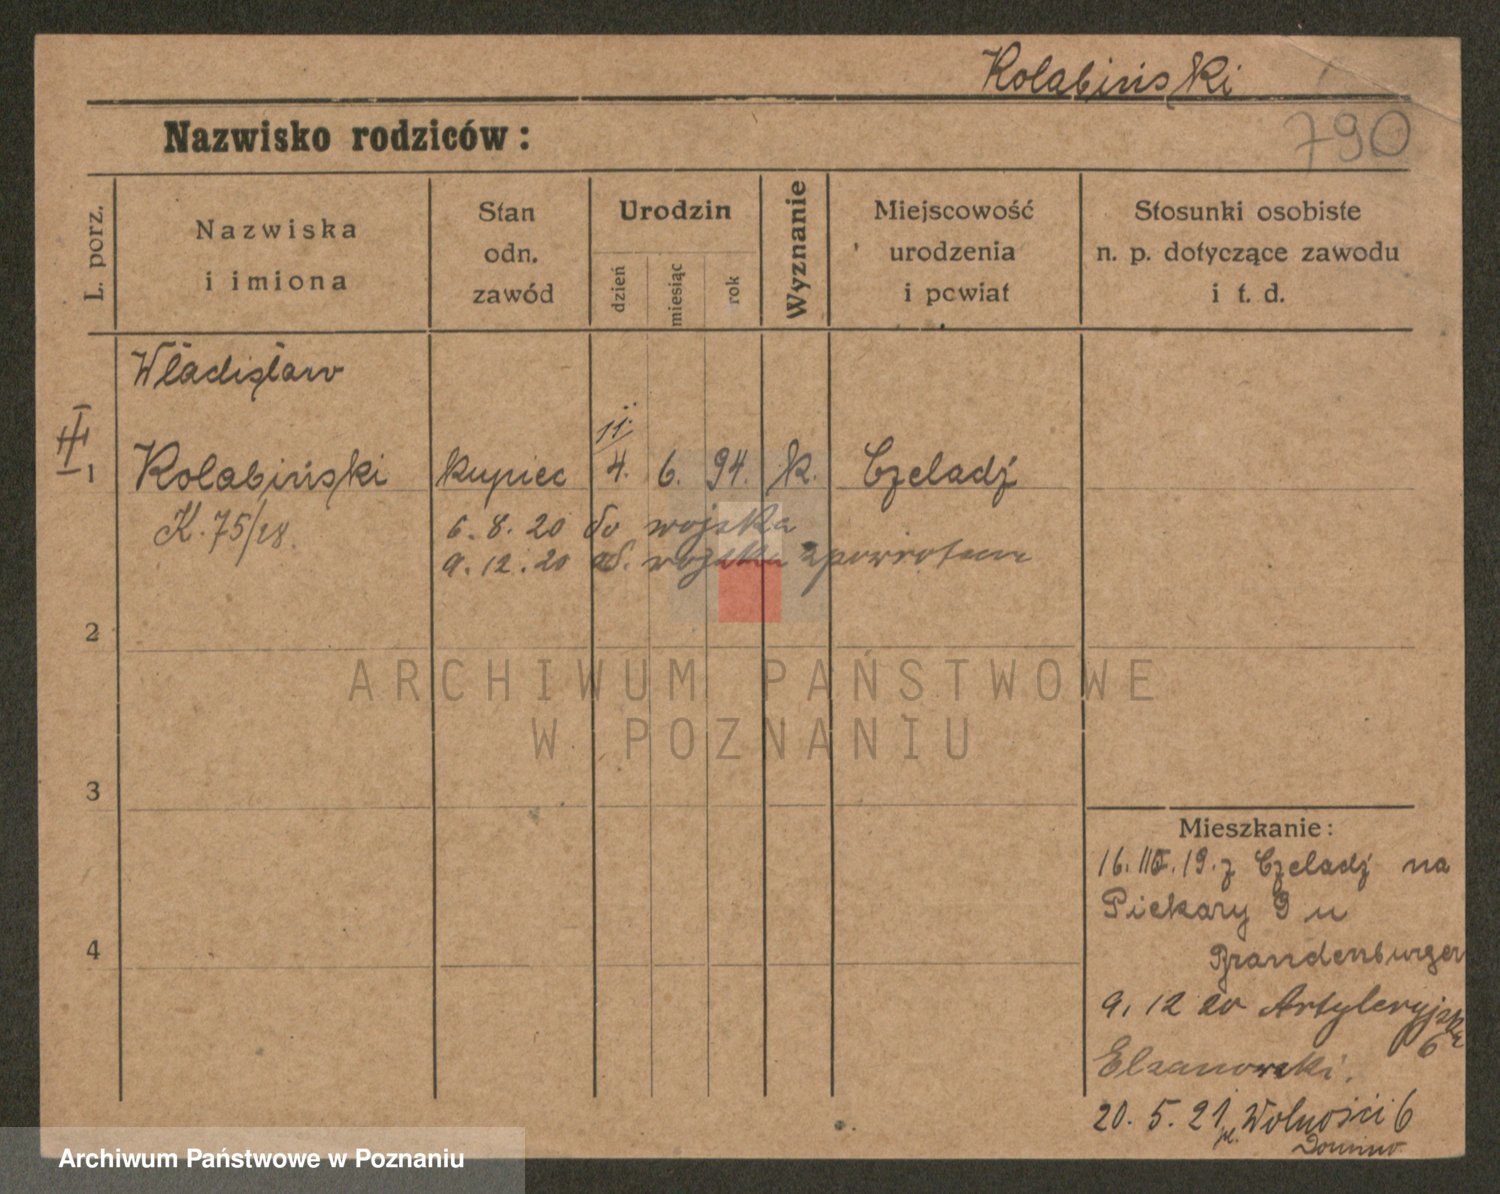 Kolabiński
790
Nazwisko rodziców:
L. porz.
Nazwiska
i imiona
Stan
odn.
zawód
Urodzin
dzień
miesiąc
rok
Wyznanie
Miejscowość
urodzenia
i powiat
Stosunki osobiste
n. p. dotyczące zawodu
i t. d.
Władisław
11.
III
1 Kolabiński kupiec 4. 6. 94. k. Czeladź
K. 75/28. 6. 8. 20 do wojska
9. 12. 20 od. wojska zpowrotem
2
ARCHIWUM PAŃSTWOWE
W POZNANIU
3
Mieszkanie:
16. III. 19. z Czeladź na
Piekary 9 u
4
Brandenburger
9. 12 20 Artyleryjska
6
Elsanowski.
20. 5. 21 pl. Wolności 6
Archiwum Państwowe w Poznaniu